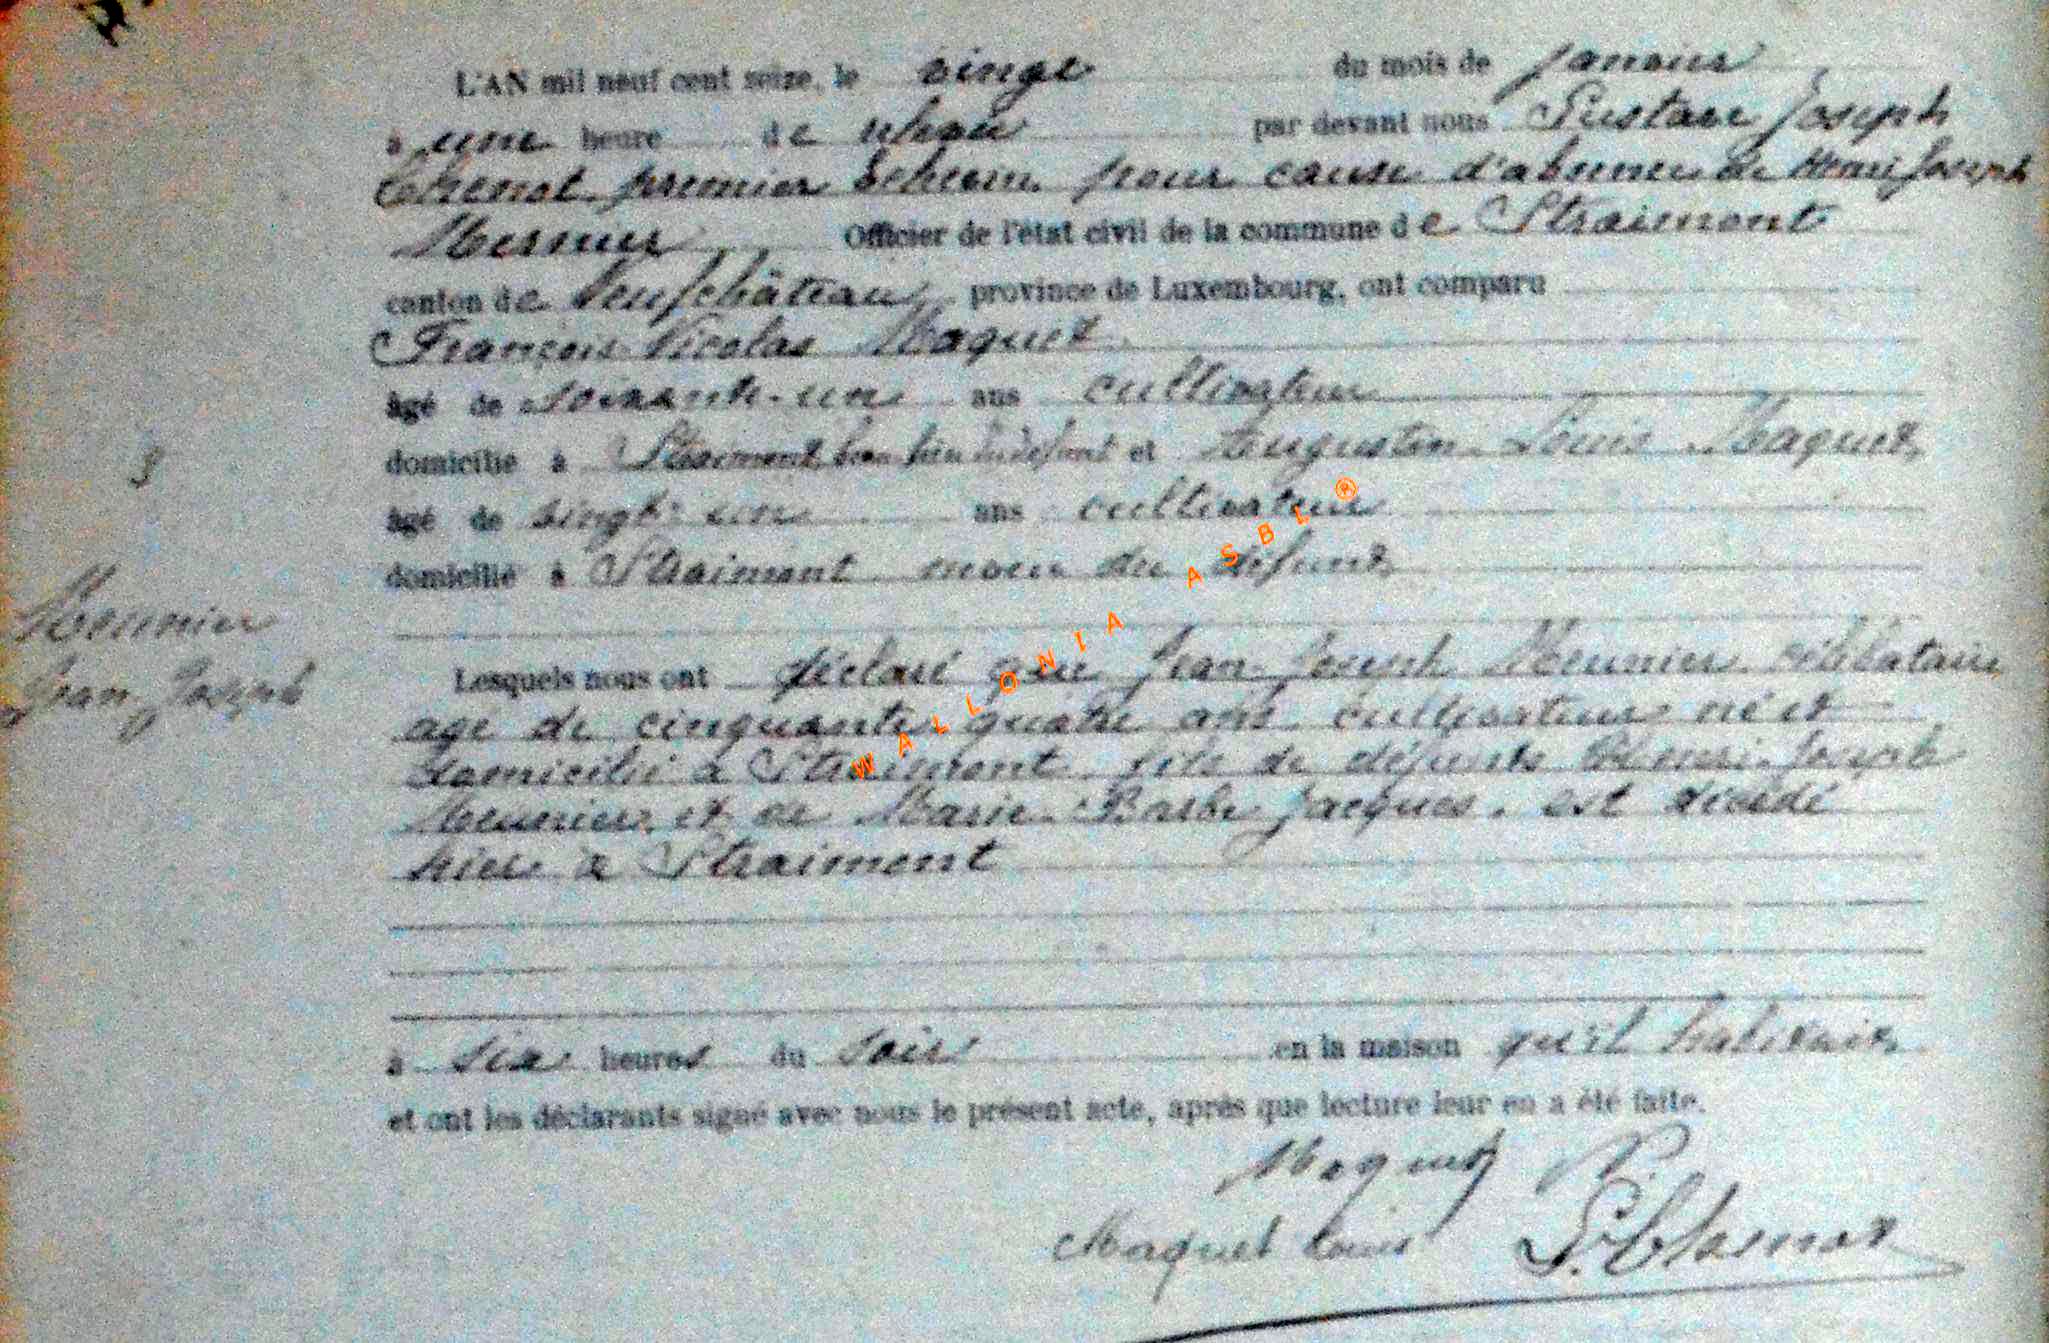 L'AN mil neuf cent seize, le vingt du mois de janvier
à une heure de relevée par devant nous Gustave Joseph
premier Echevin pour cause d'absence de Henri Joseph
Meunier Officier de l'état civil de la commune de Straimont
canton de Neufchâteau province de Luxembourg, ont comparu
François Nicolas Maquet
âgé de soixante-un ans cultivateur
domicilié à Straimont, beau frère du défunt et Augustin Louis Maquet,
âgé de vingt-un ans cultivateur
domicilié à Straimont neveu du défunt
3
Meunier
Jean Joseph
Lesquels nous ont déclaré que Jean Joseph Meunier célibataire
agé de cinquante quatre ans cultivateur né et
domicilié à Straimont fils de défunts Henri Joseph
Meunier et de Marie Barbe Jacques, est décédé
hier à Straimont
à six heures du soir en la maison qu'il habitait
et ont les déclarants signé avec nous le présent acte, après que lecture leur en a été faite.
Maquet N.
Maquet Louis
WALLONIA ASBL ®